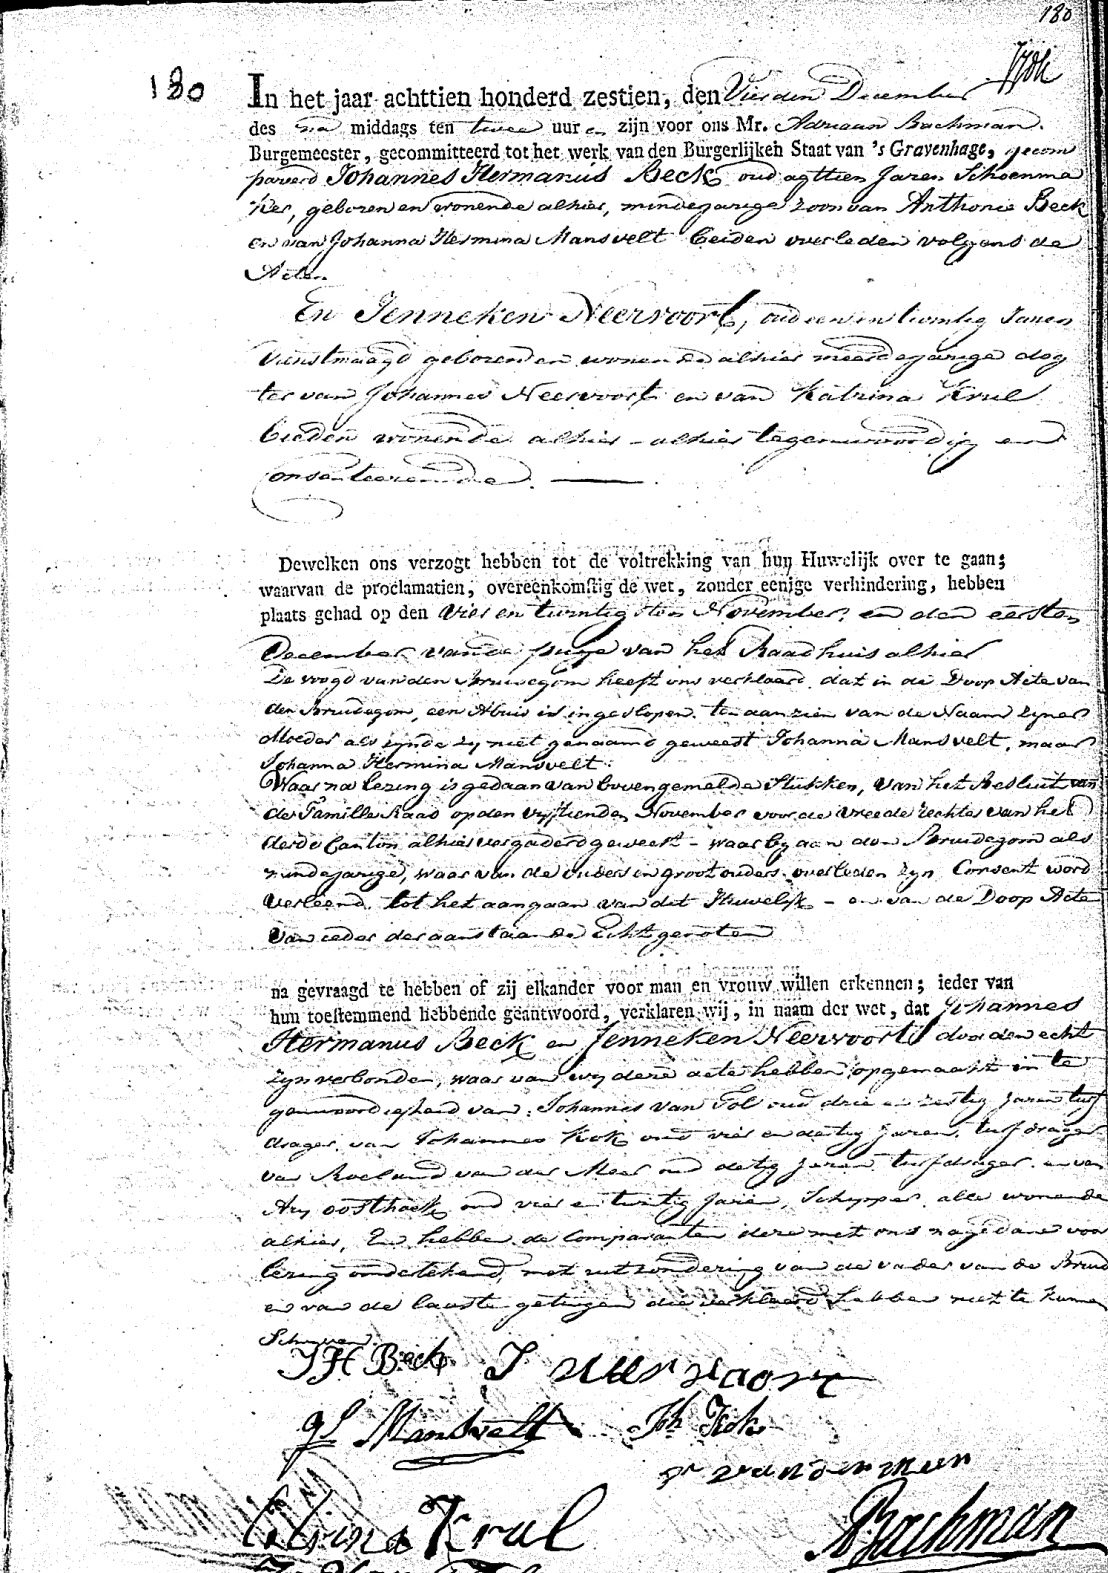 180
180
In het jaar achttien honderd zestien, den Vierden December
des na middags ten twee uuren zijn voor ons Mr. Adriaan Bachman.
Burgemeester, gecommitteerd tot het werk van den Burgerlijken Staat van 's Gravenhage, gecom
pareerd Johannes Hermanus Beck oud agttien Jaren Schoenma
ker, geboren en wonende alhier, minderjarige zoon van Anthonie Beck
en van Johanna Hermina Mansvelt beiden overleden volgens de
Acten
En Jenneken Neervoort, oud een en twintig Jaren
Dienstmaagd geboren en wonende alhier meerderjarige dog
ter van Johannes Neervoort en van Katrina Krul
beiden wonende alhier - alhier tegenwoordig en
Consenteerende.
Dewelken ons verzogt hebben tot de voltrekking van hun Huwelijk over te gaan;
waarvan de proclamatien, overeenkomstig de wet, zonder eenige verhindering, hebben
plaats gehad op den vier en twintigsten November en den eersten
December van de puye van het Raadhuis alhier
De voogd van den Bruidegom heeft ons verklaard dat in de Doop Acte van
den Bruidegom, een Abuis is ingeslopen ten aanzien van de Naam zyner
Moeder als zynde zy niet genaamd geweest Johanna Mansvelt, maar
Johanna Hermina Mansvelt.
Waar na lezing is gedaan van bovengemelde stukken, van het Besluit van
de Famille Raad op den vyftienden November voor de Vreede Rechter van het
derde Canton alhier vergaderd geweest - waar by aan den Bruidegom als
mindejarige, waar van de ouders en grootouders overleden zyn Consent word
verleend tot het aangaan van dit Huwelijk - en van de Doop Acte
van ieder der aanstaande Echtgenoten
na gevraagd te hebben of zij elkander voor man en vrouw willen erkennen; ieder van
hun toestemmend hebbende geantwoord, verklaren wij, in naam der wet, dat Johannes
Hermanus Beck en Jenneken Neervoort door den echt
zyn verbonden, waar van wy deze acte hebben opgemaakt in te
genwoordigheid van Johannes van Tol oud drie en zestig Jaren turf
drager, van Johannes Kok oud vier en dertig Jaren, turfdrager
van Roeland van der Meer oud dertig Jaren turfdrager en van
Ary Oosthoek oud vier en twintig Jaren, Schipper alle wonende
alhier, En hebben de Comparanten deze met ons na gedane voor
lezing ondertekend, met uitzondering van de vader van de Bruid
en van de laatste getuigen die verklaard hebben niet te kunnen
Schryven.
JH Beck J neervoort
Mansvelt Joh Kok
van der meer
Krul
ABachman